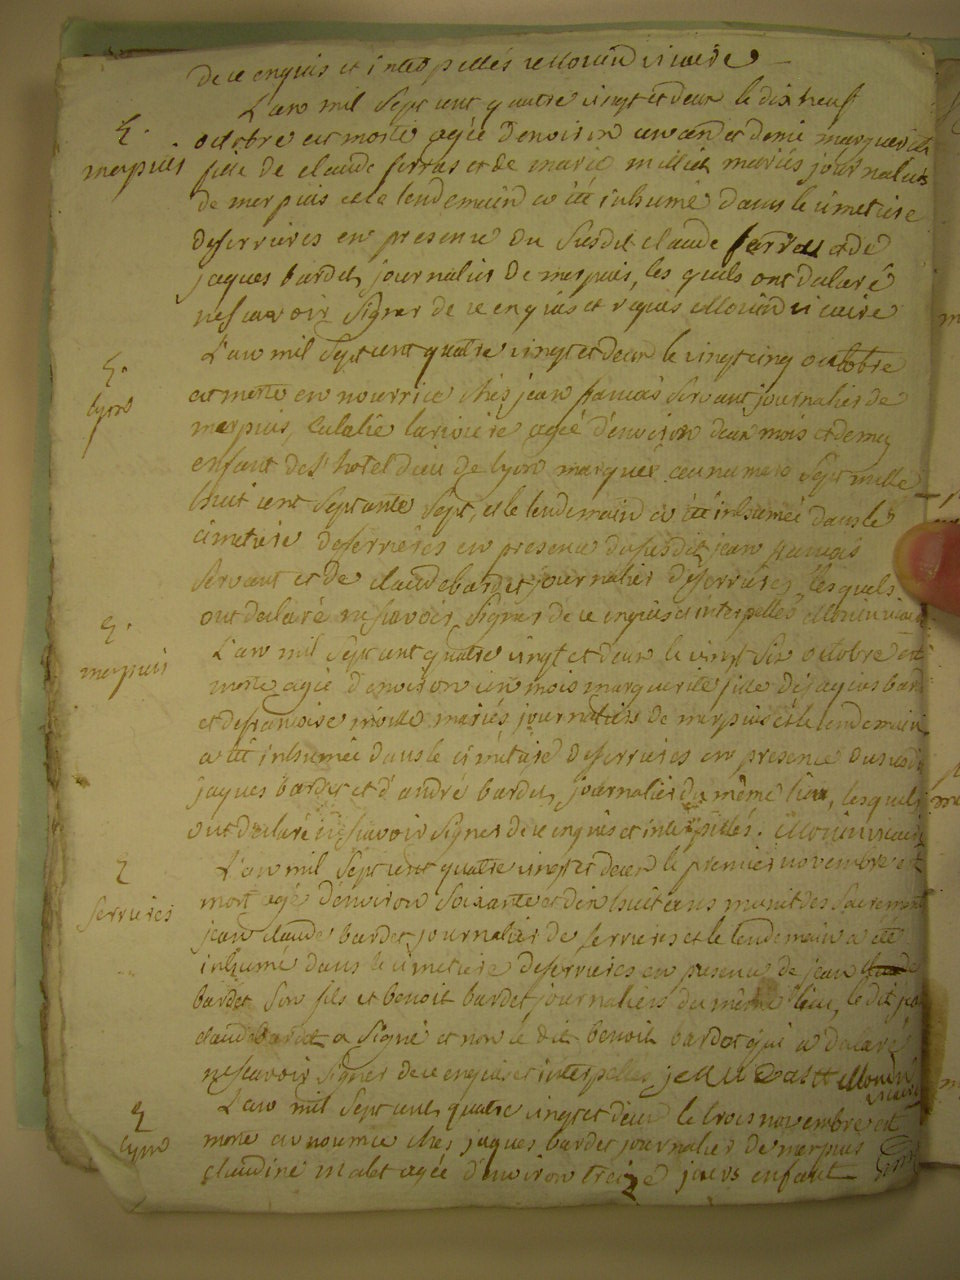 de ce enquis et interpellés Mouin vicaire
L'an mil sept cent quatre vingt et deux le dix neuf
S.
merpuis
octobre est morte agée d'environ un an et demi marguerite
fille de claude ferras et de marie milliat mariés journaliers
de merpuis et le lendemain a été inhumé dans le cimetiere
deserrieres en presence du susdit claude ferras et de
jaques bardet journalier de merpuis, les quels ont declaré
ne scavoir signer de ce enquis et requis Mouin vicaire
L'an mil sept cent quatre vingt et deux le vingt cinq octobre
S.
lyon
est morte en nourrice chés jean francois servant journalier de
merpuis, Eulalie lariviere agée d'environ deux mois et demy
enfant de l'hotel dieu de lyon marqués au numero sept mille
huit cent septante sept, et le lendemain a été inhumée dans le
cimetiere deserrieres en presence du susdit jean francois
servant et de claude bardet journalier deserrieres lesquels
ont declaré ne scavoir signer de ce enquis et interpellés Mouin vicair
S.
merpuis
L'an mil sept cent quatre vingt et deux le vingt six octobre est
morte agée d'environ un mois marguerite fille de jaques bard
et de francoise mariés journaliers de merpuis et le lendemain
a été inhumée dans le cimetiere deserrieres en presence du susdit
jaques bardet et d'andré bardet, journalier du même lieu, lesquels
ont declaré ne scavoir signer de ce enquis et interpellés. Mouin vicair
S
serrieres
L'an mil sept cent quatre vingt et deux le premier novembre est
mort agé d'environ soixante et dix huit ans munit des sacrement
jean claude bardet journalier de serrieres et le lendemain a été
inhumé dans le cimetiere deserrieres en presence de jean claude
bardet son fils et benoit bardet journaliers du même lieu, le dit jea
claude bardet a signé et non le dit benoit bardet qui a declaré
ne scavoir signer de ce enquis et interpelles Mouin
vicaire
S
lyon
L'an mil sept cent quatre vingt et deux le trois novembre est
morte en nourrice chés jaques bardet journalier de merpuis
claudine malet agée d'environ treize jours enfant